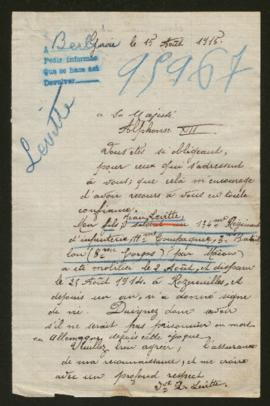 A Berl
Pedir informe
Que se hace así
Devolver
le 15 Août 1915.
95967
Levitte
a Sa Majesté
Alphonse XIII
Vous été si obligeant,
pour ceux qui s'adressent
à vous; que celà m'encourage
d'avoir recours à vous en toute
confiance.
Mon fils Jean Levitte
soldat au 134 me Régiment
d'infanterie 11 me Compagnie, 3. Batail
lon (8 Corps) par Macon
a été mobilisé le 2 Août, et disparu
le 25 Août 1914. à Rozenulles, et
depuis un an, n'a donné signe
de vie. Daignez donc savoir
s'il ne serait pas prisonnier ou mort
en Allemagne, depuis cette époque.
Veuillez bien agréer l'assurance
de ma reconnaissance, et me croire
avec un profond respect
Levitte